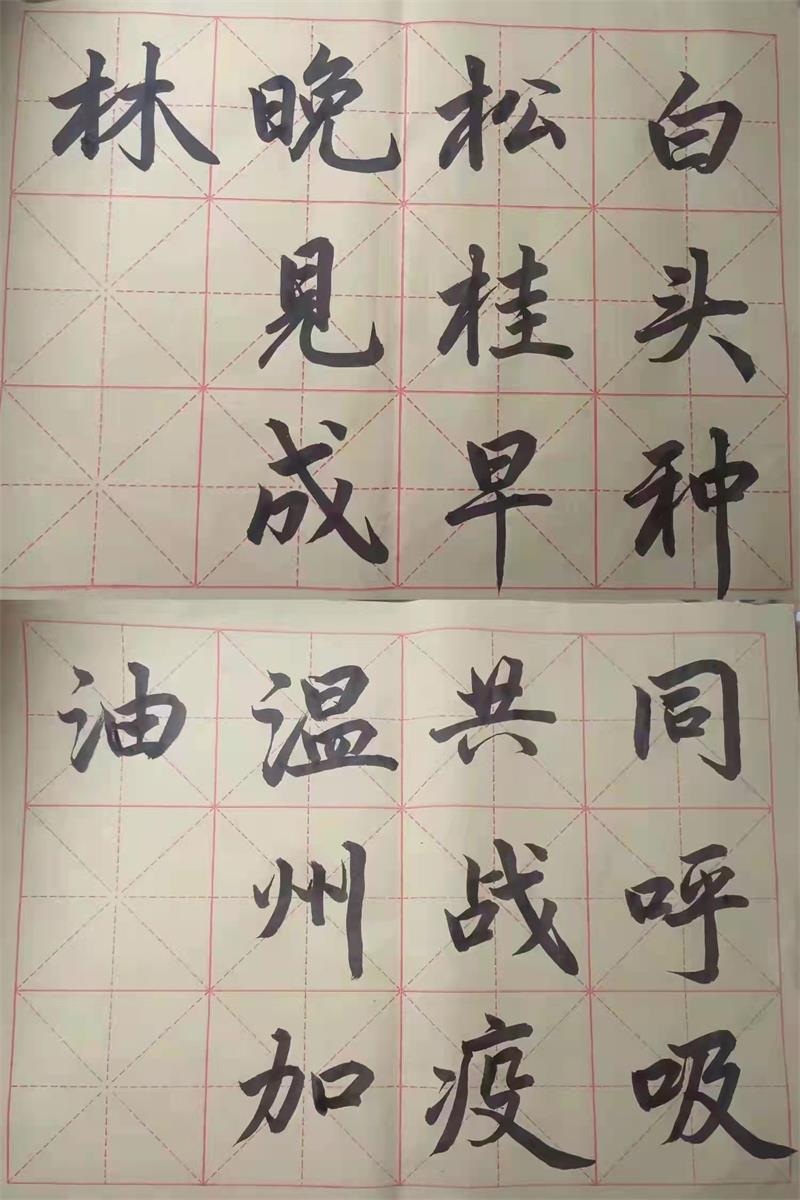 白头种
松桂早
晚見成
林
同呼吸
共战疫
温州加
油